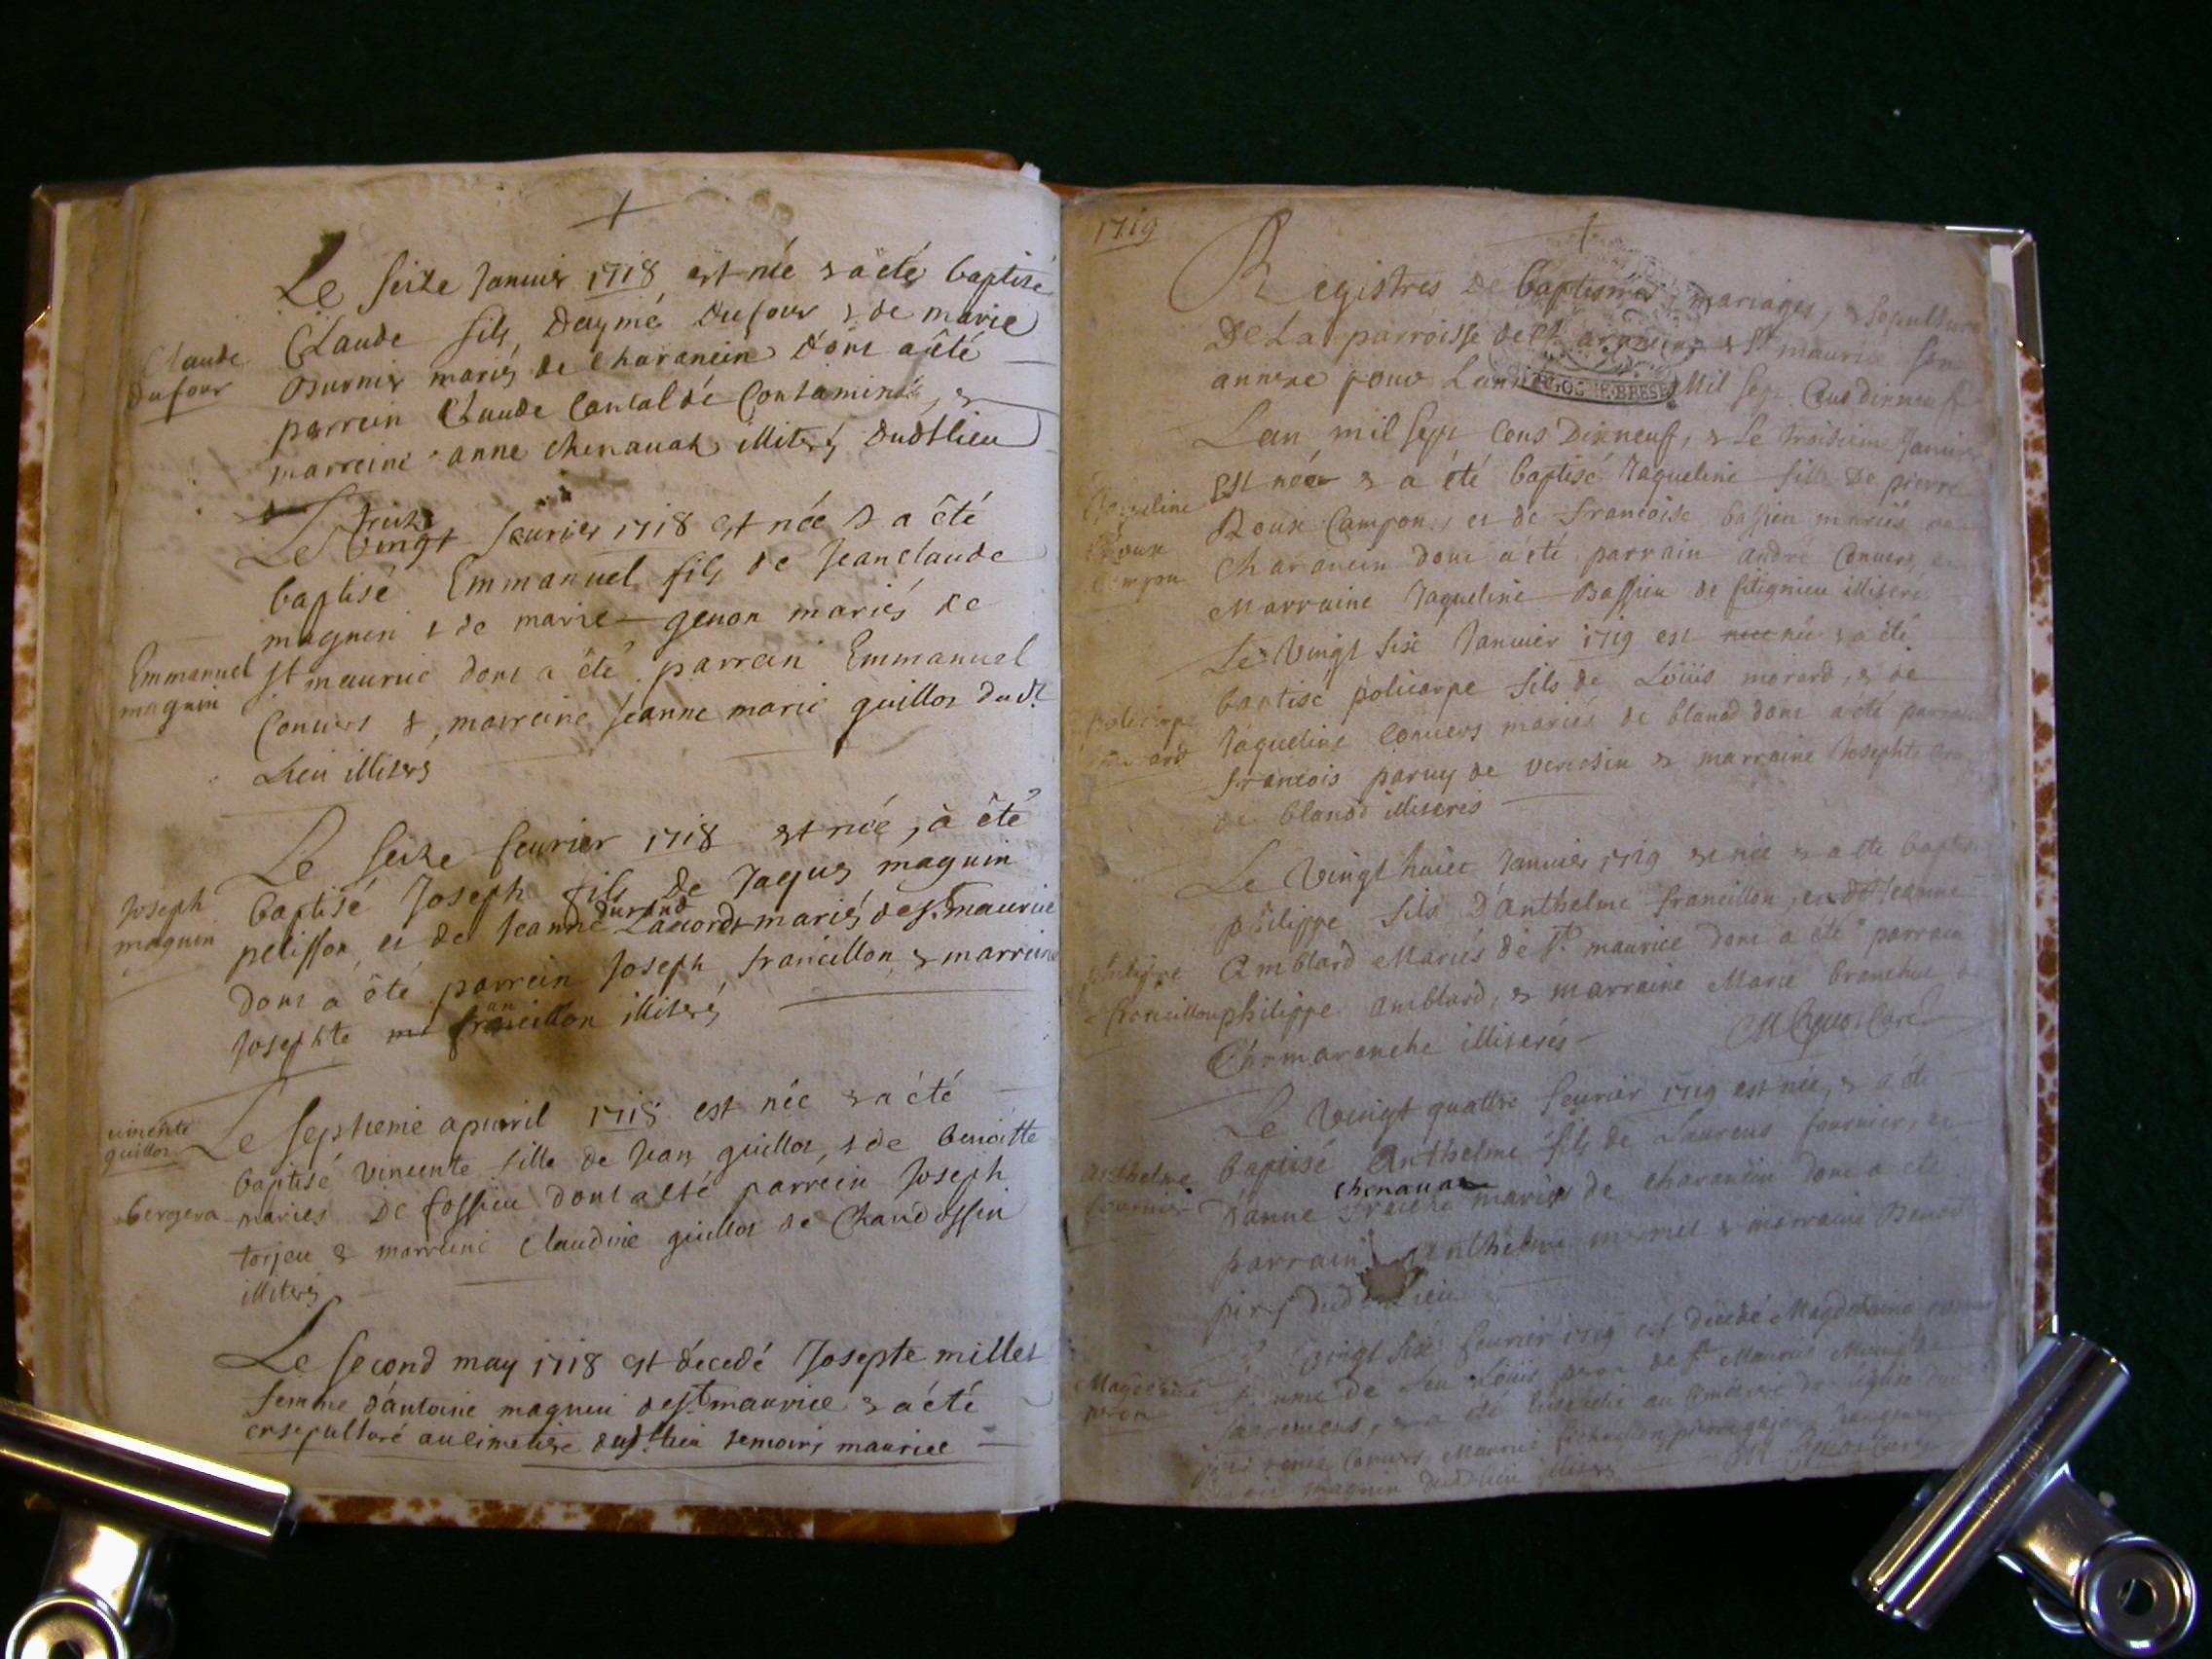 Le seize Janvier 1718 est née & a été baptisé
Claude fils, d'aymé dufour & de marie
Claude
dufour
Burnier mariés de Charancin dont a été
parrein Claude
marreine anne chenauat illiterés dudt lieu
treize
Le vingt feurier 1718 est née & a été
baptisé Emmanuel fils de Jeanclaude
magnin & de marie genon mariés de
Emmanuel
magnin
st maurice dont a été parrein Emmanuel
Conuers & marreine Jeanne marie guillot dudt
Lieu illiterés
Le seize feurier 1718 est née, à été
Joseph
magnin
baptisé Joseph fils de Jaques magnin
durand
pelisson et de Jeanne mariés de st maurice
dont a été parrein Joseph francillon & marreine
Josephte francillon illiterés
Le septieme apuril 1718 est née & a été
vincente
guillot
baptisé vincente fille de Jean guillot, & de benoitte
bergera mariés De fossieu dont a été parrein Joseph
torjeu & marreine Claudine guillot de Chandossin
illiterés
Le second may 1718 est décedé Josepte millet
femme d'antoine magnin de st maurice & a été
ensepulturé au cimetiere dudt lieu temoins maurice
1719
Registres De Baptismes mariages, & sepultures
De La parroisse de Charancin & St maurice son
annexe pour Lannée Mil Sept Cens dixneuf
GOGNE.BRESSE
Lan mil sept Cens Dixneuf, & Le troisieme Januier
est née & a été baptisé Jaqueline fille de pierre
Jaqueline
Roux
Campon
Roux Campon, et de francoise bassieu mariés de
Charancin dont a été parrain andré Conuers, et
Marraine Jaqueline Bassieu de fitignieu illiteré
Le Vingt sixe Januier 1719 est née & a été
baptisé policarpe fils de Loüis morard, & de
policarpe
morard
Jaqueline Conuers mariés de blanod dont a été parrain
francois paruy de & marraine Josephte
de blanod illiterés
Le Vingt huict Januier 1719 est née & a este baptisé
philippe fils d'Anthelme francillon, et de Jeanne
philippe
francillon
Amblard Mariés de St maurice dont a été parrain
philippe amblard, & marraine Marie branchut de
Charmaranche illiterés
Le Vingt quattre feurier 1719 est née, & a été
baptisé Anthelme fils de Laurens fournier, et
Anthelme
fournier
chenauat
D'anne mariés de charancin dont a été
parrain Anthelme & marraine Benoite
dudt Lieu
Le Vingt sixe feurier 1719 est décedé Magdelaine
Magdelaine
peron
femme de feu Loüis peron de St Maurice Munie de
sacremens, & a été au Cimetiere de l'église dudt
Conuers, Maurice francillon, pierre
magnin dudt lieu illiterés